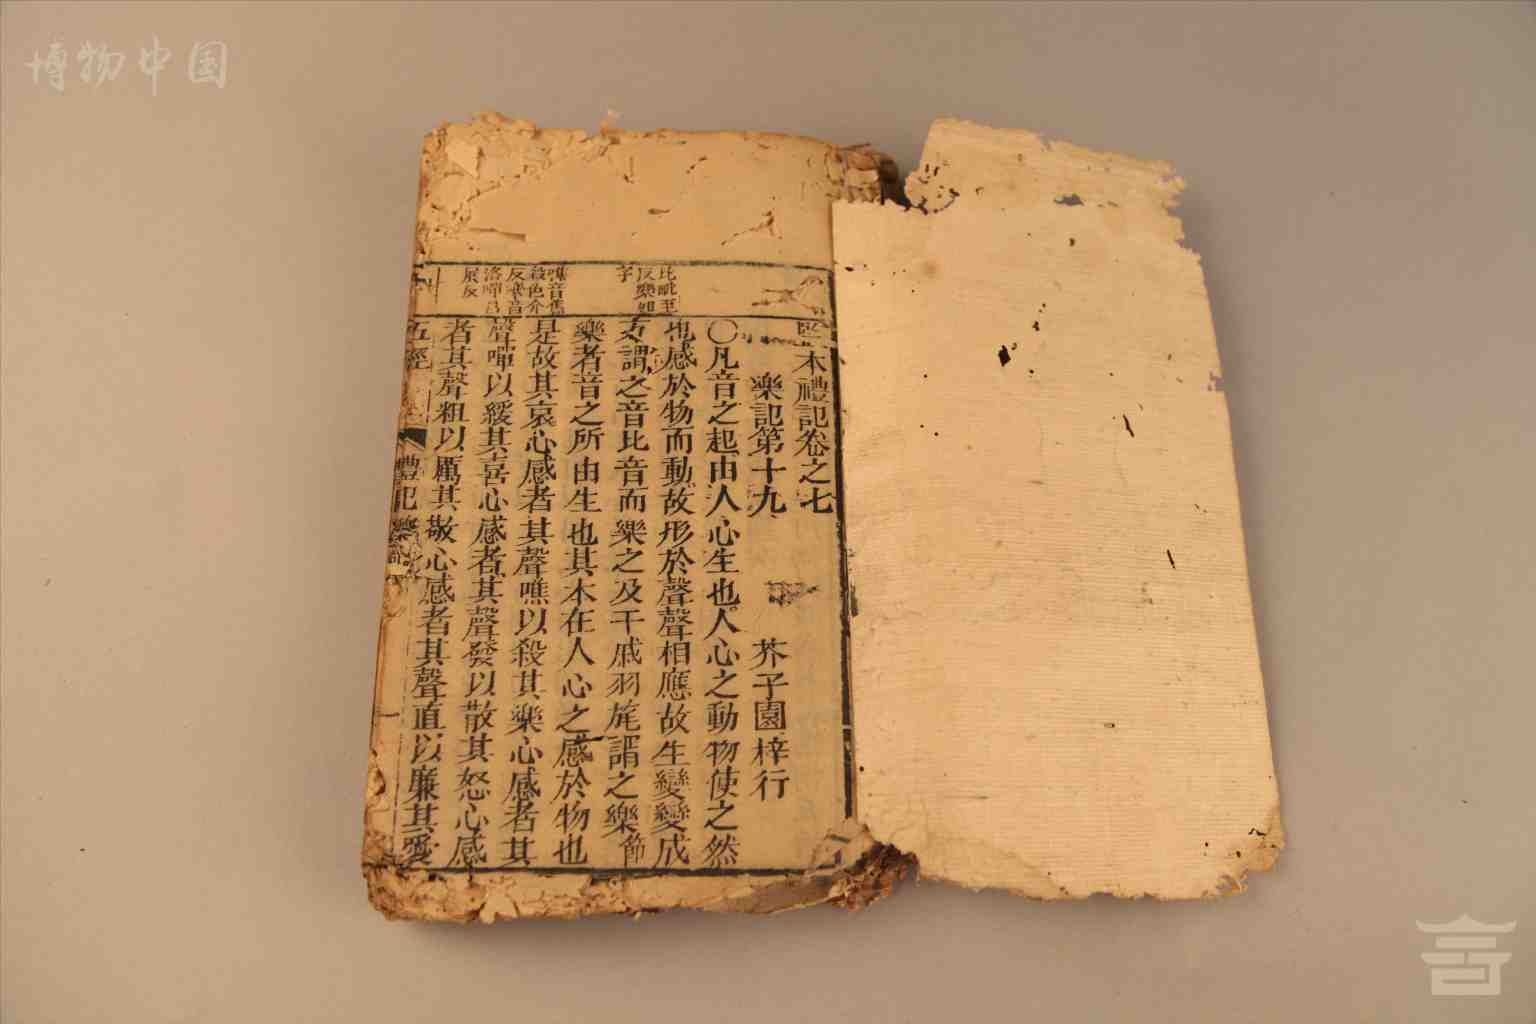 博物中国
監本禮記卷之七
樂記第十九 芥子園梓行
〇凡音之起由人心生也人心之動物使之然
也感於物而動故形於聲聲相應故生變變成
方謂之音比音而樂之及干戚羽旄謂之樂節
樂者音之所由生也其本在人心之感於物也
是故其哀心感者其聲噍以殺其樂心感者其
聲嘽以緩其喜心感者其聲發以散其怒心感
者其聲粗以厲其敬心感者其聲直以廉其愛
比毗至
反樂如
字
噍音焦
殺色介
反
展反
五經
禮記樂記